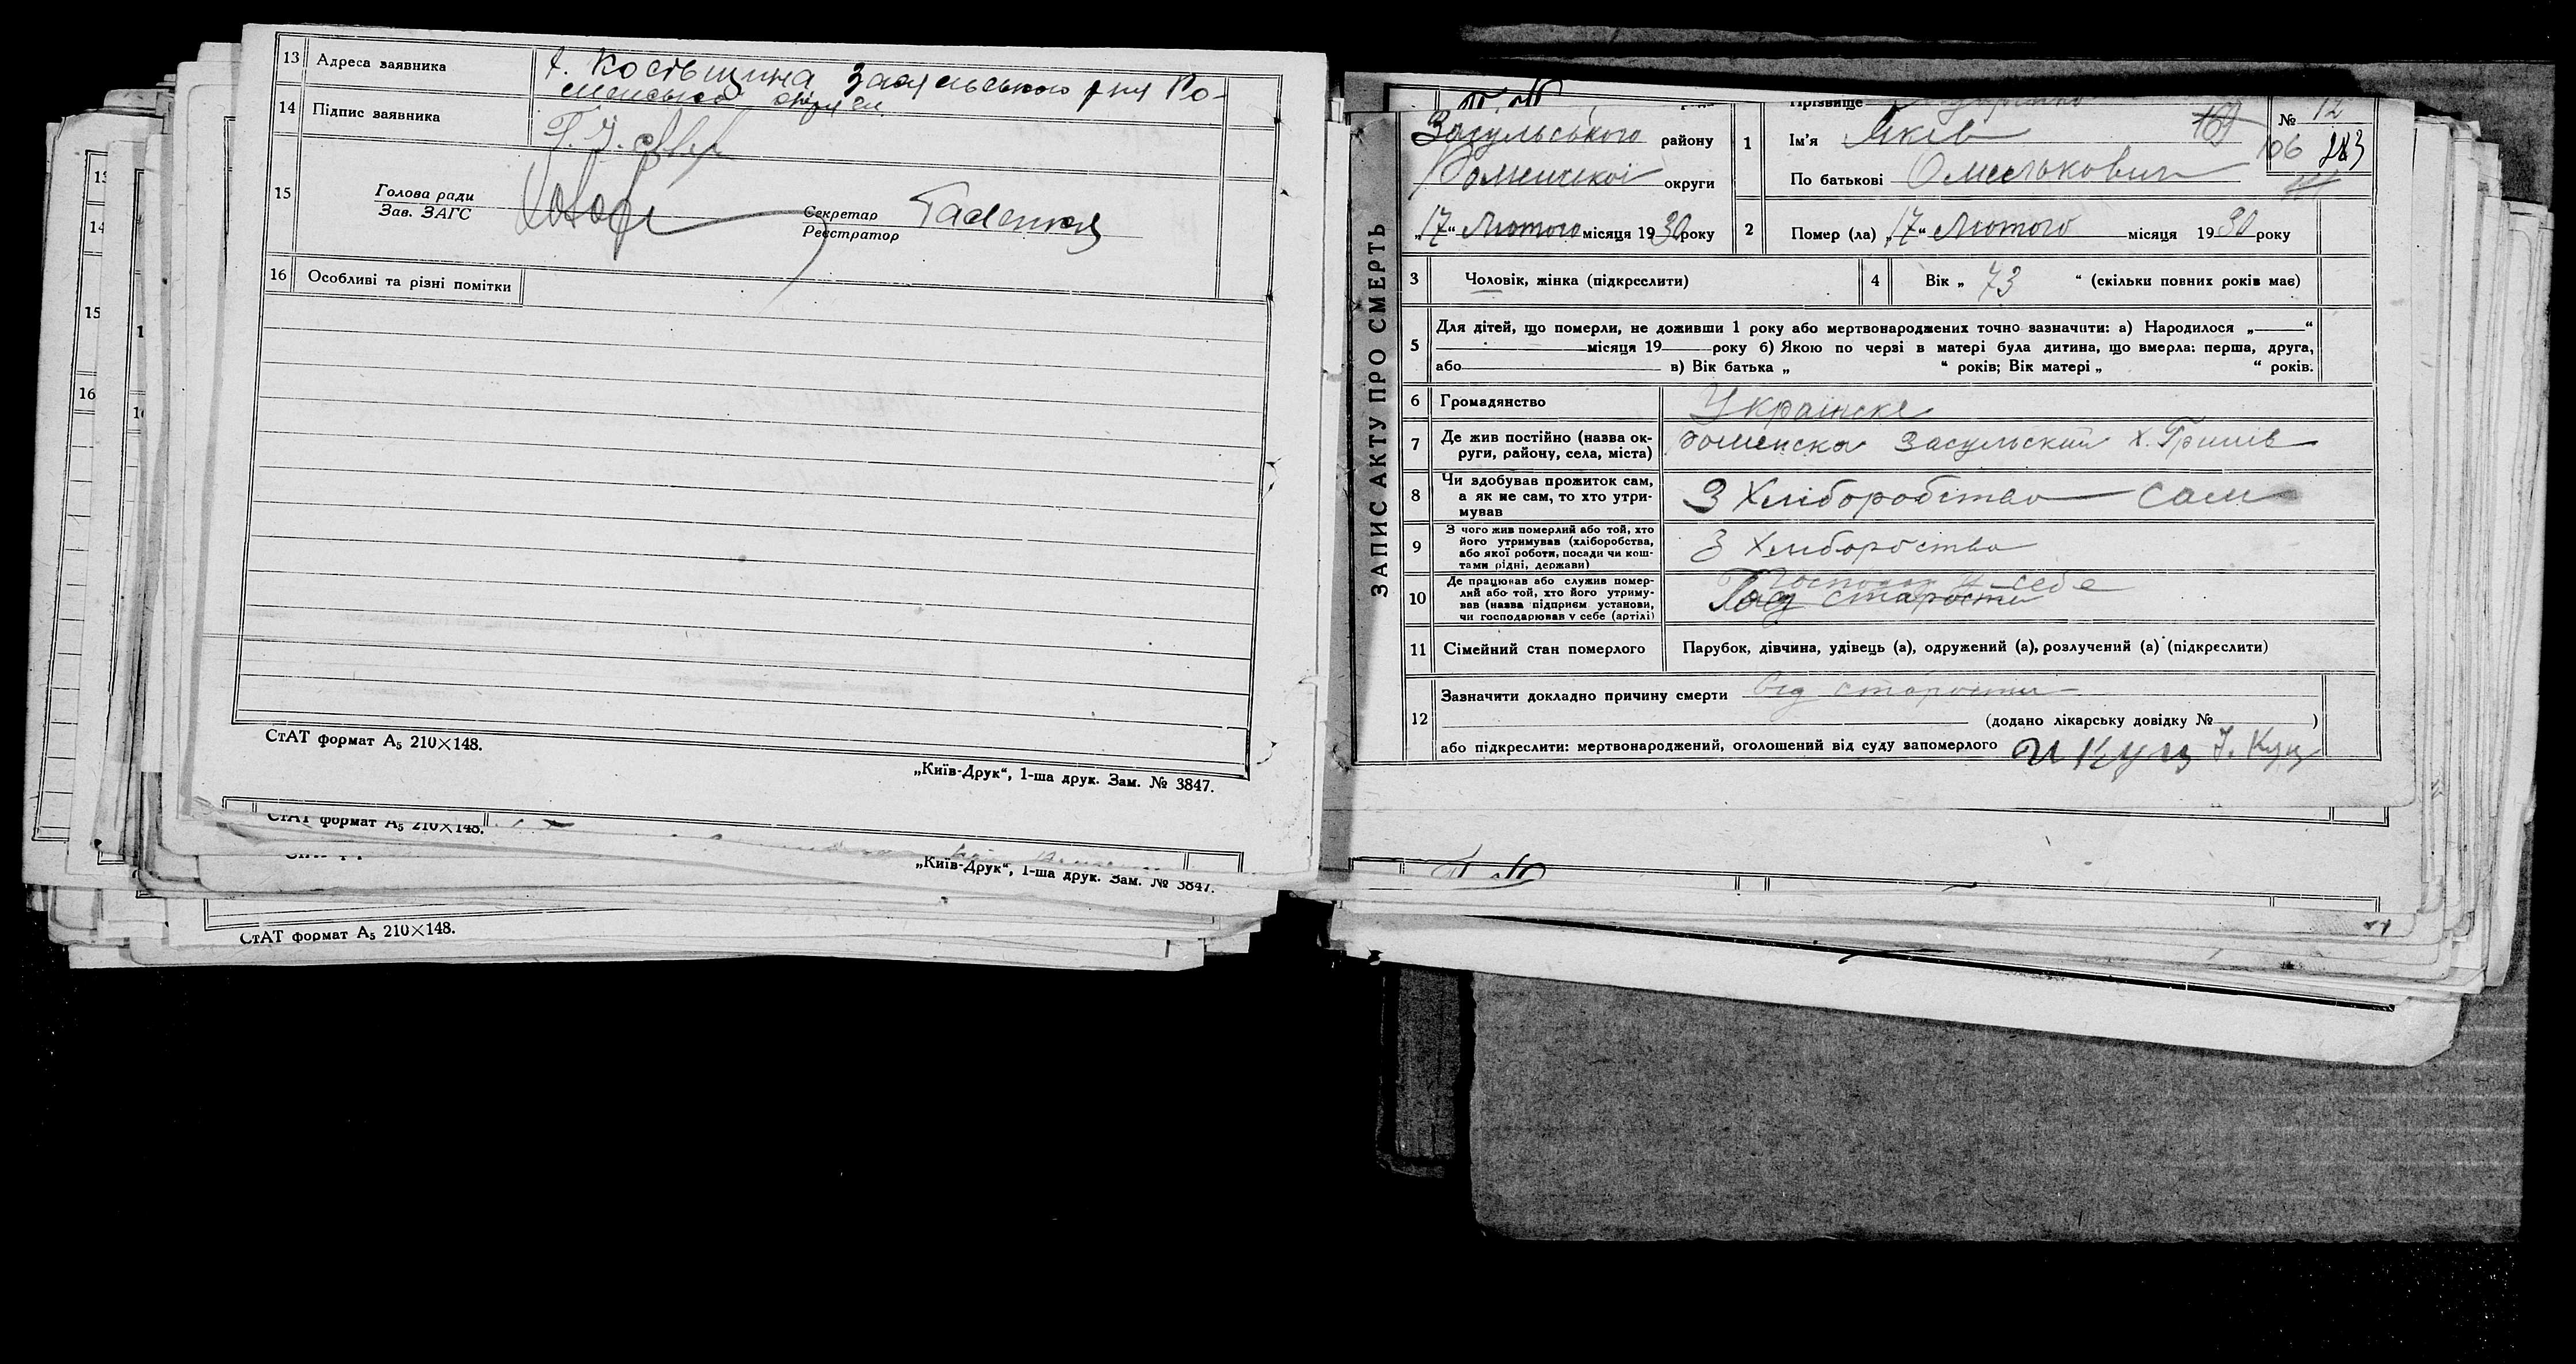 13 Адреса заявника
х. Костьщина Засульського р-ну Ро-
менської округи
14 Підпис заявника
15 Голова ради
Зав. ЗАГС
Секретар
Реєстратор
16 Особливі та різні помітки
СтАТ формат А5 210×148.
„Київ-Друк“, 1-ша друк. Зам. № 3847.
СтАТ формат А5 210×148.
„Київ-Друк“, 1-ша друк. Зам. № 3847.
СтАТ формат А5 210×148.
ЗАПИС АКТУ ПРО СМЕРТЬ
Засульського району
Роменської округи
„17“ Лютого місяця 1930 року
1 Прізвище
Ім'я Яків
По батькові Омелькович
№ 12
106
2 Помер (ла) „17“ Лютого місяця 1930 року
3 Чоловік, жінка (підкреслити)
4 Вік „ 73 “ (скільки повних років має)
5 Для дітей, що померли, не доживши 1 року або мертвонароджених точно зазначити: а) Народилося „ “
місяця 19 року б) Якою по черзі в матері була дитина, що вмерла: перша, друга,
або в) Вік батька „ “ років; Вік матері „ “ років.
6 Громадянство Українске
7 Де жив постійно (назва ок-
руги, району, села, міста)
Роменска Засульский х. Гришів
8 Чи здобував прожиток сам,
а як не сам, то хто утри-
мував
З Хліборобства сам
9 З чого жив померлий або той, хто
його утримував (хліборобства,
або якої роботи, посади чи кош-
тами рідні, держави)
З Хлиборства
10 Де працював або служив помер-
лий або той, хто його утриму-
вав (назва підприєм. установи,
чи господарював у себе (артілі)
Господар у себе
старости
11 Сімейний стан померлого
Парубок, дівчина, удівець (а), одружений (а), розлучений (а) (підкреслити)
12 Зазначити докладно причину смерти Від старости
(додано лікарську довідку № )
або підкреслити: мертвонароджений, оголошений від суду запомерлого И Куц І. Куц